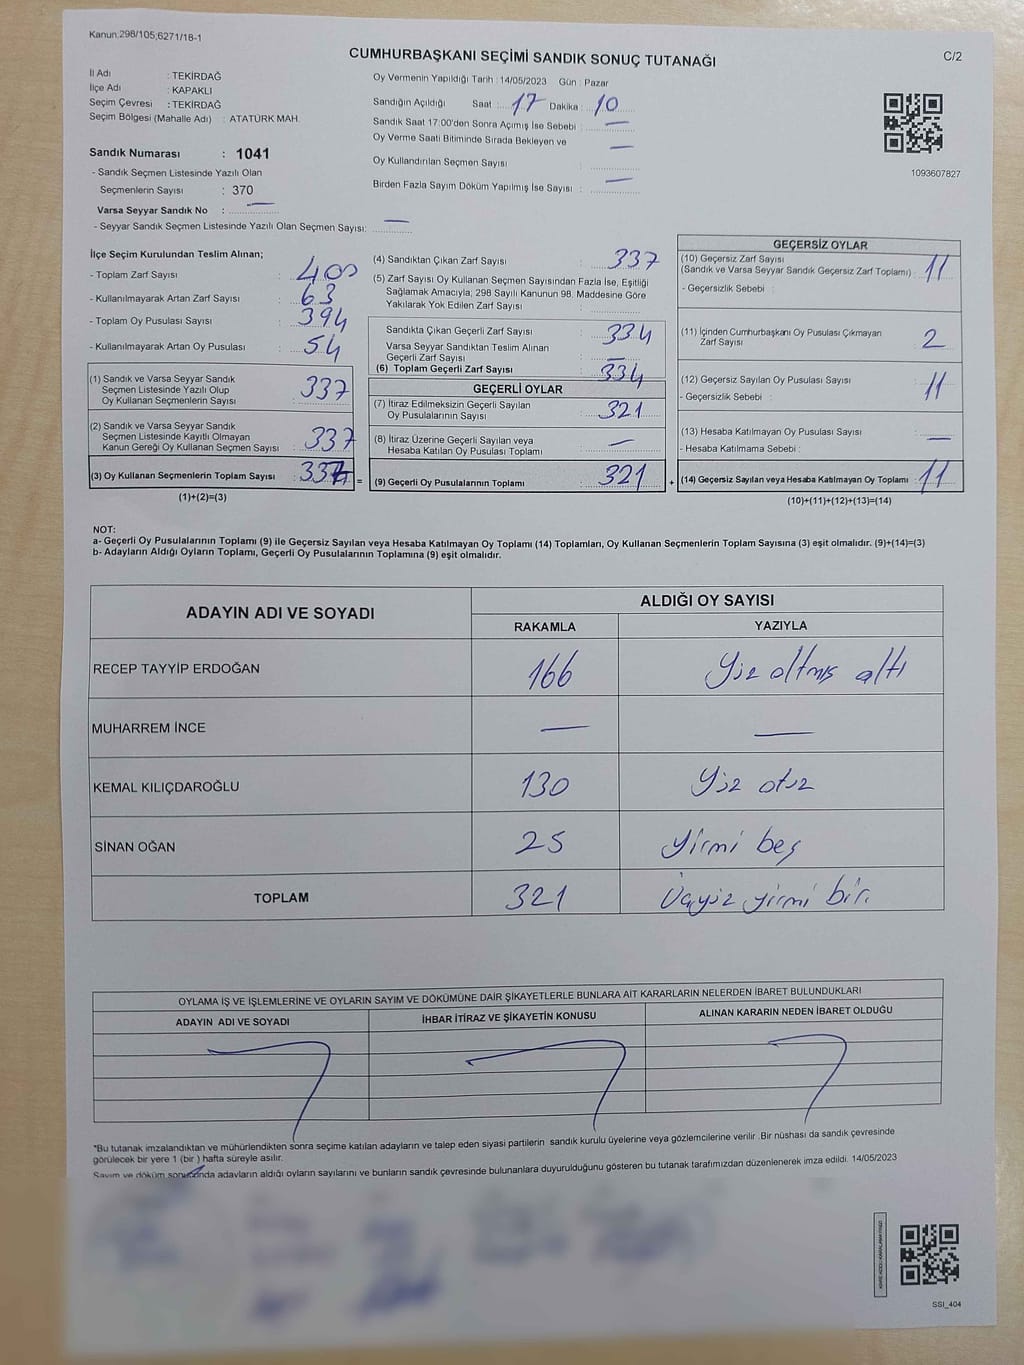 Kanun.298/105;6271/18-1
CUMHURBAŞKANI SEÇİMİ SANDIK SONUÇ TUTANAĞI
C/2
İl Adı : TEKİRDAĞ
İlçe Adı : KAPAKLI
Seçim Çevresi : TEKİRDAĞ
Seçim Bölgesi (Mahalle Adı) : ATATÜRK MAH.
Oy Vermenin Yapıldığı Tarih : 14/05/2023 Gün : Pazar
Sandığın Açıldığı Saat : 17 Dakika : 10
Sandık Saat 17:00'den Sonra Açımış İse Sebebi : —
Oy Verme Saati Bitiminde Sırada Bekleyen ve —
Oy Kullandırılan Seçmen Sayısı :
Birden Fazla Sayım Döküm Yapılmış İse Sayısı : —
1093607827
Sandık Numarası : 1041
- Sandık Seçmen Listesinde Yazılı Olan
Seçmenlerin Sayısı : 370
Varsa Seyyar Sandık No : —
- Seyyar Sandık Seçmen Listesinde Yazılı Olan Seçmen Sayısı: —
İlçe Seçim Kurulundan Teslim Alınan;
- Toplam Zarf Sayısı : 400
- Kullanılmayarak Artan Zarf Sayısı : 63
- Toplam Oy Pusulası Sayısı : 394
- Kullanılmayarak Artan Oy Pusulası : 54
(1) Sandık ve Varsa Seyyar Sandık
Seçmen Listesinde Yazılı Olup
Oy Kullanan Seçmenlerin Sayısı : 337
(2) Sandık ve Varsa Seyyar Sandık
Seçmen Listesinde Kayıtlı Olmayan
Kanun Gereği Oy Kullanan Seçmen Sayısı : 337
(3) Oy Kullanan Seçmenlerin Toplam Sayısı : =
(1)+(2)=(3)
(4) Sandıktan Çıkan Zarf Sayısı : 337
(5) Zarf Sayısı Oy Kullanan Seçmen Sayısından Fazla İse, Eşitliği
Sağlamak Amacıyla; 298 Sayılı Kanunun 98. Maddesine Göre
Yakılarak Yok Edilen Zarf Sayısı :
Sandıkta Çıkan Geçerli Zarf Sayısı : 334
Varsa Seyyar Sandıktan Teslim Alınan
Geçerli Zarf Sayısı : —
(6) Toplam Geçerli Zarf Sayısı : 334
GEÇERLİ OYLAR
(7) İtiraz Edilmeksizin Geçerli Sayılan
Oy Pusulalarının Sayısı : 321
(8) İtiraz Üzerine Geçerli Sayılan veya
Hesaba Katılan Oy Pusulası Toplamı : —
(9) Geçerli Oy Pusulalarının Toplamı : 321 +
GEÇERSİZ OYLAR
(10) Geçersiz Zarf Sayısı
(Sandık ve Varsa Seyyar Sandık Geçersiz Zarf Toplamı) : 11
- Geçersizlik Sebebi :
(11) İçinden Cumhurbaşkanı Oy Pusulası Çıkmayan
Zarf Sayısı : 2
(12) Geçersiz Sayılan Oy Pusulası Sayısı : 11
- Geçersizlik Sebebi :
(13) Hesaba Katılmayan Oy Pusulası Sayısı : —
- Hesaba Katılmama Sebebi :
(14) Geçersiz Sayılan veya Hesaba Katılmayan Oy Toplamı : 11
(10)+(11)+(12)+(13)=(14)
NOT:
a- Geçerli Oy Pusulalarının Toplamı (9) ile Geçersiz Sayılan veya Hesaba Katılmayan Oy Toplamı (14) Toplamları, Oy Kullanan Seçmenlerin Toplam Sayısına (3) eşit olmalıdır. (9)+(14)=(3)
b- Adayların Aldığı Oyların Toplamı, Geçerli Oy Pusulalarının Toplamına (9) eşit olmalıdır.
ADAYIN ADI VE SOYADI ALDIĞI OY SAYISI
RAKAMLA YAZIYLA
RECEP TAYYİP ERDOĞAN 166 Yüz altmış altı
MUHARREM İNCE — —
KEMAL KILIÇDAROĞLU 130 Yüz otuz
SİNAN OĞAN 25 yirmi beş
TOPLAM 321 Üçyüz yirmi bir.
OYLAMA İŞ VE İŞLEMLERİNE VE OYLARIN SAYIM VE DÖKÜMÜNE DAİR ŞİKAYETLERLE BUNLARA AİT KARARLARIN NELERDEN İBARET BULUNDUKLARI
ADAYIN ADI VE SOYADI İHBAR İTİRAZ VE ŞİKAYETİN KONUSU ALINAN KARARIN NEDEN İBARET OLDUĞU
*Bu tutanak imzalandıktan ve mühürlendikten sonra seçime katılan adayların ve talep eden siyasi partilerin sandık kurulu üyelerine veya gözlemcilerine verilir .Bir nüshası da sandık çevresinde
görülecek bir yere 1 (bir ) hafta süreyle asılır.
Sayım ve döküm sonucunda adayların aldığı oyların sayılarını ve bunların sandık çevresinde bulunanlara duyurulduğunu gösteren bu tutanak tarafımızdan düzenlenerek imza edildi. 14/05/2023
SSI_404